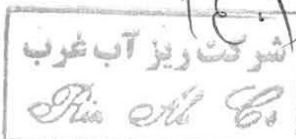 شرکت ریز آب غرب
Riz Ab Co